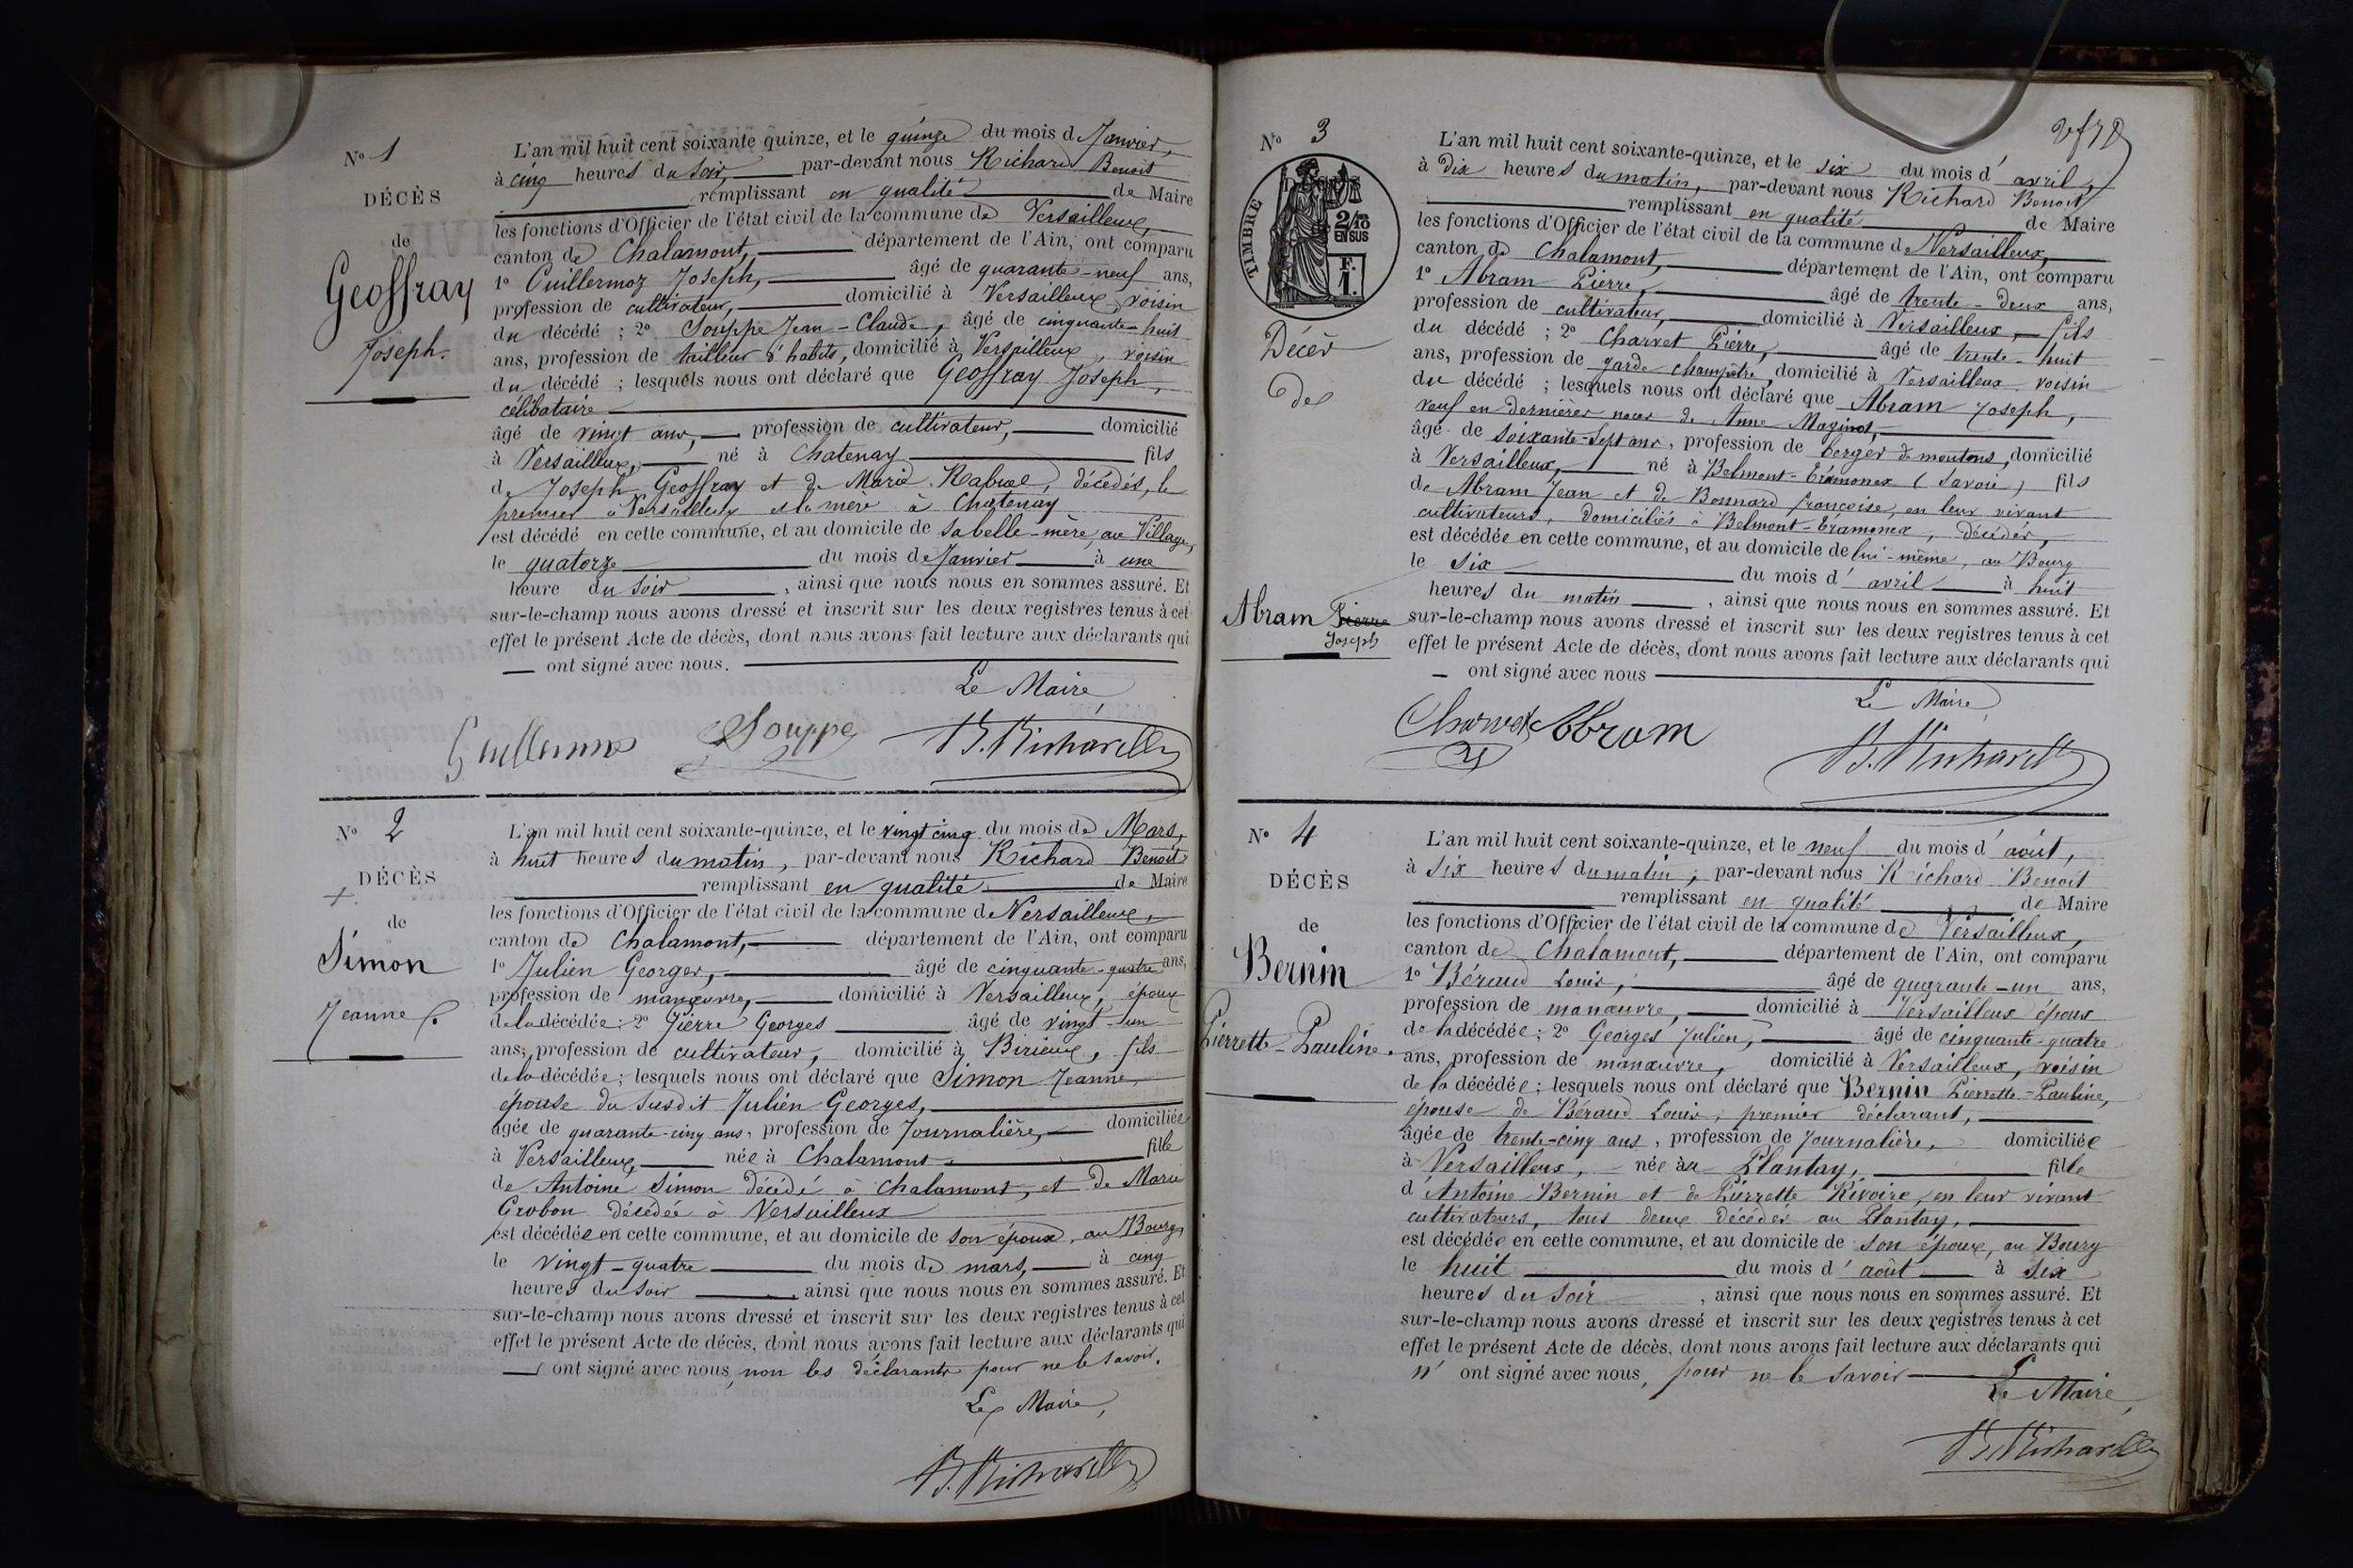 N° 1
DÉCÈS
de
Geoffray
Joseph.
L'an mil huit cent soixante quinze, et le quinze du mois de Janvier,
à cinq heures du soir, par-devant nous Richard Benoit
remplissant en qualité de Maire
les fonctions d'Officier de l'état civil de la commune de Versailleux,
canton de Chalamont, département de l'Ain, ont comparu
1° Guillermoz Joseph, âgé de quarante-neuf ans,
profession de cultivateur, domicilié à Versailleux voisin
du décédé ; 2° Souppe Jean-Claude, âgé de cinquante-huit
ans, profession de tailleur d'habits, domicilié à Versailleux, voisin
du décédé ; lesquels nous ont déclaré que Geoffray Joseph,
célibataire
âgé de vingt ans, profession de cultivateur, domicilié
à Versailleux, né à Chatenay fils
de Joseph Geoffray et de Marie Rabuel, décédés, le
premier à Versailleux et la mère à Chatenay
est décédé en cette commune, et au domicile de sa belle-mère, au Village,
le quatorze du mois de Janvier à une
heure du soir, ainsi que nous nous en sommes assuré. Et
sur-le-champ nous avons dressé et inscrit sur les deux registres tenus à cet
effet le présent Acte de décès, dont nous avons fait lecture aux déclarants qui
ont signé avec nous.
Le Maire,
Guillermoz Souppe B. Richard
N° 2
DÉCÈS
de
Simon
Jeanne
L'an mil huit cent soixante-quinze, et le vingt cinq du mois de Mars,
à huit heures du matin, par-devant nous Richard Benoit
remplissant en qualité de Maire
les fonctions d'Officier de l'état civil de la commune de Versailleux,
canton de Chalamont, département de l'Ain, ont comparu
1° Julien Georges, âgé de cinquante-quatre ans,
profession de manœuvre, domicilié à Versailleux, époux
de la décédée ; 2° Pierre Georges âgé de vingt-un
ans, profession de cultivateur, domicilié à Birieux, fils
de la décédée ; lesquels nous ont déclaré que Simon Jeanne,
épouse du susdit Julien Georges,
âgée de quarante-cinq ans, profession de Journalière, domiciliée
à Versailleux, née à Chalamont fille
de Antoine Simon décédé à Chalamont, et de Marie
Grobon décédée à Versailleux
est décédée en cette commune, et au domicile de son époux, au Bourg
le vingt-quatre du mois de mars, à cinq
heures du soir, ainsi que nous nous en sommes assuré. Et
sur-le-champ nous avons dressé et inscrit sur les deux registres tenus à cet
effet le présent Acte de décès, dont nous avons fait lecture aux déclarants qui
ont signé avec nous, non les déclarants pour ne le savoir.
Le Maire,
B. Richard
N° 3
TIMBRE
2/10
EN SUS
F.
1.
Décès
de
Abram Pierre
Joseph
L'an mil huit cent soixante-quinze, et le six du mois d'avril,
à dix heures du matin, par-devant nous Richard Benoit
remplissant en qualité de Maire
les fonctions d'Officier de l'état civil de la commune de Versailleux,
canton de Chalamont, département de l'Ain, ont comparu
1° Abram Pierre, âgé de trente-deux ans,
profession de cultivateur, domicilié à Versailleux, fils
du décédé ; 2° Charvet Pierre, âgé de trente-huit
ans, profession de garde champêtre, domicilié à Versailleux voisin
du décédé ; lesquels nous ont déclaré que Abram Joseph,
veuf en dernières noces de Anne Maginot,
âgé de soixante-sept ans, profession de berger de moutons, domicilié
à Versailleux, né à Belmont-Tramonex (Savoie) fils
de Abram Jean et de Bonnard françoise, en leur vivant
cultivateurs, domiciliés à Belmont-Tramonex, décédés,
est décédée en cette commune, et au domicile de lui-même, au Bourg
le six du mois d'avril à huit
heures du matin, ainsi que nous nous en sommes assuré. Et
sur-le-champ nous avons dressé et inscrit sur les deux registres tenus à cet
effet le présent Acte de décès, dont nous avons fait lecture aux déclarants qui
ont signé avec nous
Le Maire
Charvet Abram B. Richard
N° 4
DÉCÈS
de
Bernin
Pierrette-Pauline.
L'an mil huit cent soixante-quinze, et le neuf du mois d'août,
à six heures du matin, par-devant nous Richard Benoit
remplissant en qualité de Maire
les fonctions d'Officier de l'état civil de la commune de Versailleux,
canton de Chalamont, département de l'Ain, ont comparu
1° Béraud Louis, âgé de quarante-un ans,
profession de manœuvre, domicilié à Versailleux époux
de la décédée ; 2° Georges Julien, âgé de cinquante-quatre
ans, profession de manœuvre, domicilié à Versailleux, voisin
de la décédée ; lesquels nous ont déclaré que Bernin Pierrette-Pauline,
épouse de Béraud Louis, premier déclarant,
âgée de trente-cinq ans, profession de Journalière, domiciliée
à Versailleux, née au Plantay, fille
d'Antoine Bernin et de Pierrette Rivoire, en leur vivant
cultivateurs, tous deux décédés au Plantay,
est décédée en cette commune, et au domicile de son époux, au Bourg
le huit du mois d'août à six
heures du soir, ainsi que nous nous en sommes assuré. Et
sur-le-champ nous avons dressé et inscrit sur les deux registres tenus à cet
effet le présent Acte de décès, dont nous avons fait lecture aux déclarants qui
n'ont signé avec nous, pour ne le savoir
Le Maire,
B. Richard